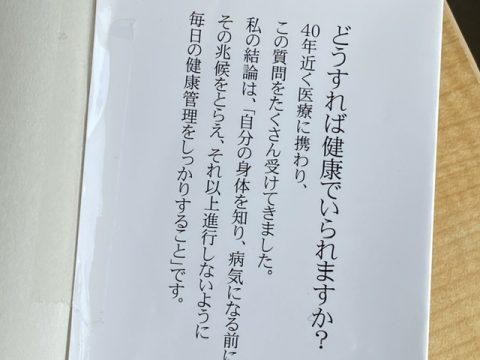 どうすれば健康でいられますか？
40年近く医療に携わり、
この質問をたくさん受けてきました。
私の結論は、「自分の身体を知り、病気になる前に
その兆候をとらえ、それ以上進行しないように
毎日の健康管理をしっかりすること」です。